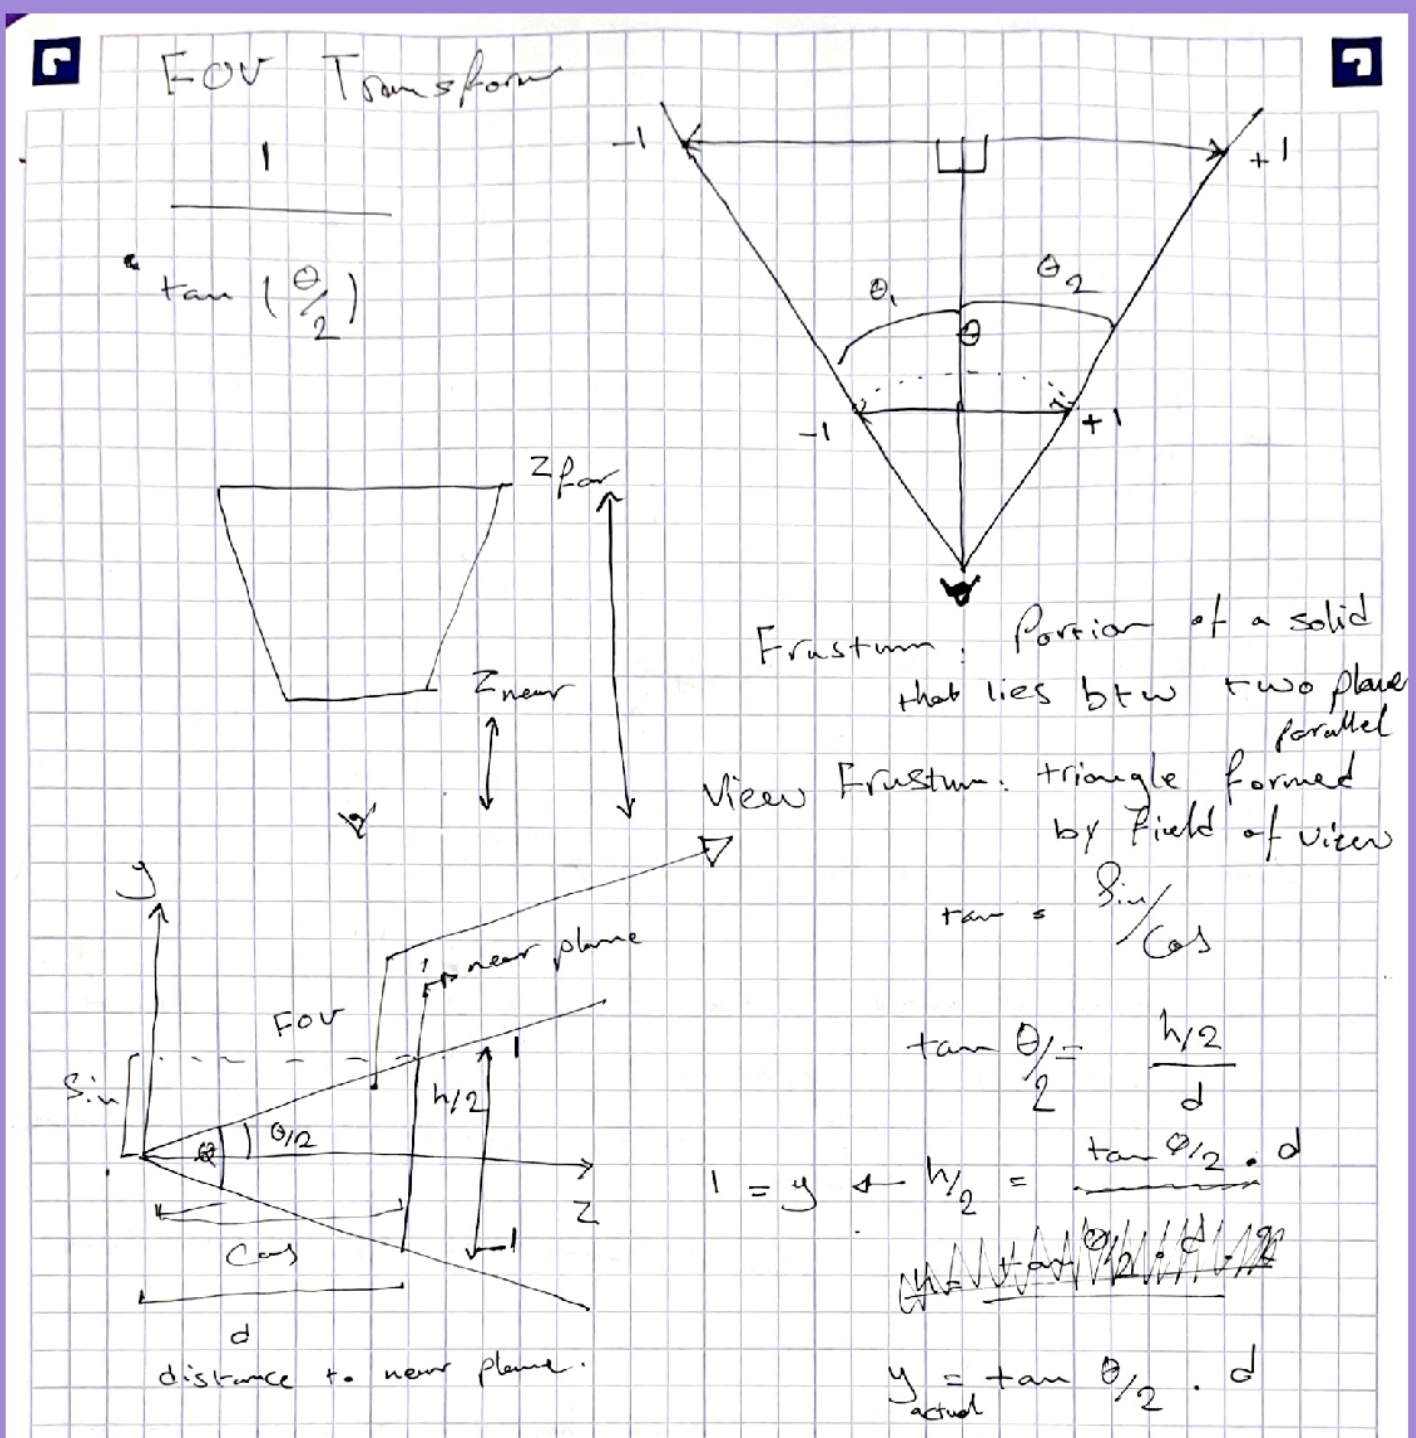 FOV Transform
1
tan (θ/2)
-1
+1
θ1
θ2
θ
-1
+1
Zfar
Znear
Frustum: Portion of a solid
that lies btw two plane
parallel
View Frustum: triangle formed
by Field of view
tan = Sin/Cos
y
near plane
FOV
Sin
θ
θ/2
h/2
1
-1
Z
Cos
d
distance to near plane.
tan θ/2 = h/2
d
1 = y ← h/2 = tan θ/2 . d
y actual = tan θ/2 . d